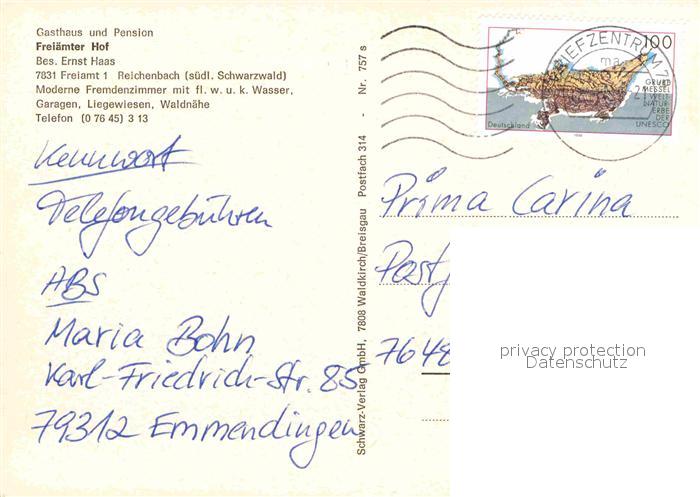 Gasthaus und Pension
Freiämter Hof
Bes. Ernst Haas
7831 Freiamt 1 Reichenbach (südl. Schwarzwald)
Moderne Fremdenzimmer mit fl. w. u. k. Wasser,
Garagen, Liegewiesen, Waldnähe
Telefon (0 76 45) 3 13
Kennwort
Telefongebühren
ABS
Maria Bohn
Karl-Friedrich-Str. 85
79312 Emmendingen
Schwarz-Verlag GmbH, 7808 Waldkirch/Breisgau Postfach 314 - Nr. 757 s
100
GRUBE
MESSEL
WELT-
NATUR-
ERBE
DER
UNESCO
Deutschland
BRIEFZENTRUM
Prima Carina
7648
privacy protection
Datenschutz